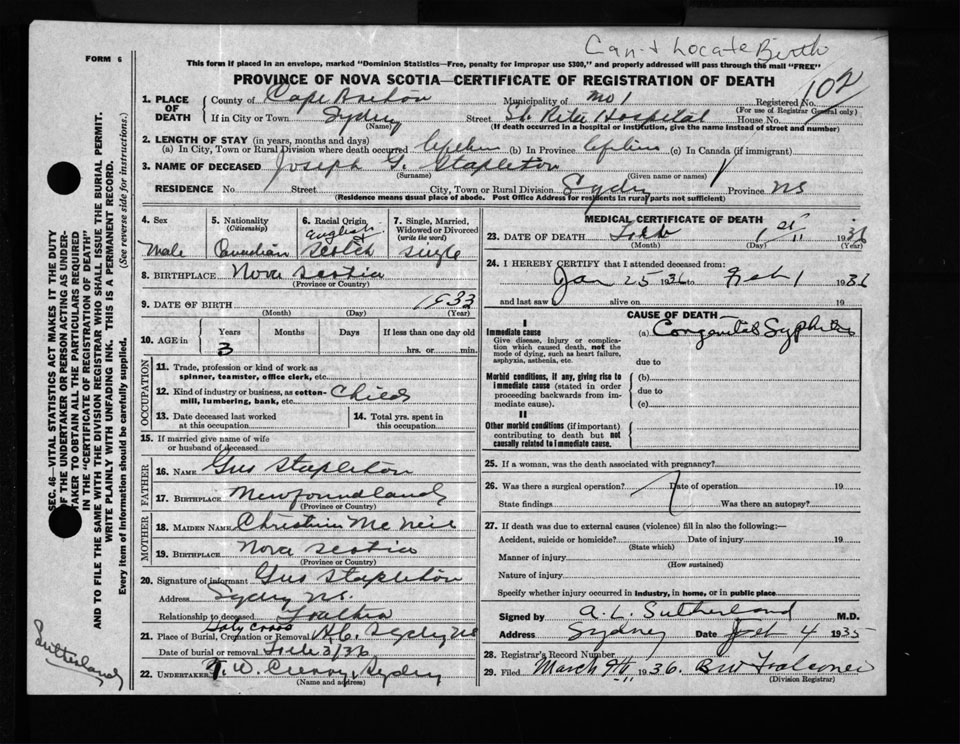 Can-t Locate Birth
FORM 6
This form if placed in an envelope, marked "Dominion Statistics—Free, penalty for improper use $300," and properly addressed will pass through the mail "FREE"
PROVINCE OF NOVA SCOTIA—CERTIFICATE OF REGISTRATION OF DEATH
102
1. PLACE OF DEATH County of Cape Breton Municipality of No 1 Registered No.
(For use of Registrar General only)
If in City or Town Sydney Street St. Rita Hospital House No.
(Name) (If death occurred in a hospital or institution, give the name instead of street and number)
2. LENGTH OF STAY (in years, months and days)
(a) In City, Town or Rural Division where death occurred Lifetime (b) In Province Lifetime (c) In Canada (if immigrant)
3. NAME OF DECEASED Joseph G. Stapleton
(Surname) (Given name or names)
RESIDENCE No Street City, Town or Rural Division Sydney Province NS
(Residence means usual place of abode. Post Office Address for residents in rural parts not sufficient)
4. Sex Male
5. Nationality (Citizenship) Canadian
6. Racial Origin English & Scotch
7. Single, Married, Widowed or Divorced (write the word) Single
8. BIRTHPLACE Nova Scotia
(Province or Country)
9. DATE OF BIRTH 1933
(Month) (Day) (Year)
10. AGE in Years Months Days If less than one day old
3 hrs. or min.
OCCUPATION
11. Trade, profession or kind of work as spinner, teamster, office clerk, etc.
12. Kind of industry or business, as cotton-mill, lumbering, bank, etc. Child
13. Date deceased last worked at this occupation
14. Total yrs. spent in this occupation
15. If married give name of wife or husband of deceased
FATHER
16. NAME Gus Stapleton
17. BIRTHPLACE Newfoundland
(Province or Country)
MOTHER
18. MAIDEN NAME Christina McNeil
19. BIRTHPLACE Nova Scotia
(Province or Country)
20. Signature of informant Gus Stapleton
Address Sydney NS.
Relationship to deceased Foather
Holy Cross
21. Place of Burial, Cremation or Removal R.C. Sydney NS
Date of burial or removal Feb 3/36
22. UNDERTAKER Sydney
(Name and address)
MEDICAL CERTIFICATE OF DEATH
23. DATE OF DEATH Feb 1st 1936
(Month) (Day) (Year)
24. I HEREBY CERTIFY that I attended deceased from:
Jan 25 1936 to Feb 1 1936
and last saw alive on 19
CAUSE OF DEATH
I
Immediate cause (a) Congenital Syphilis
Give disease, injury or complication which caused death, not the mode of dying, such as heart failure, asphyxia, asthenia, etc.
due to
Morbid conditions, if any, giving rise to immediate cause (stated in order proceeding backwards from immediate cause).
(b)
due to
(c)
II
Other morbid conditions (if important) contributing to death but not causally related to immediate cause.
25. If a woman, was the death associated with pregnancy?
26. Was there a surgical operation? Date of operation 19
State findings Was there an autopsy?
27. If death was due to external causes (violence) fill in also the following:—
Accident, suicide or homicide? Date of injury 19
(State which)
Manner of injury
(How sustained)
Nature of injury
Specify whether injury occurred in industry, in home, or in public place
Signed by A. L. Sutherland M.D.
Address Sydney Date Feb 4 1935
28. Registrar's Record Number
29. Filed March 9th 1936. BW Falconer
(Division Registrar)
SEC. 46—VITAL STATISTICS ACT MAKES IT THE DUTY
OF THE UNDERTAKER OR PERSON ACTING AS UNDER-
TAKER TO OBTAIN ALL THE PARTICULARS REQUIRED
IN THE "CERTIFICATE OF REGISTRATION OF DEATH"
AND TO FILE THE SAME WITH THE DIVISION REGISTRAR WHO SHALL ISSUE THE BURIAL PERMIT.
WRITE PLAINLY WITH UNFADING INK. THIS IS A PERMANENT RECORD.
Every item of Information should be carefully supplied. (See reverse side for instructions.)
Sutherland